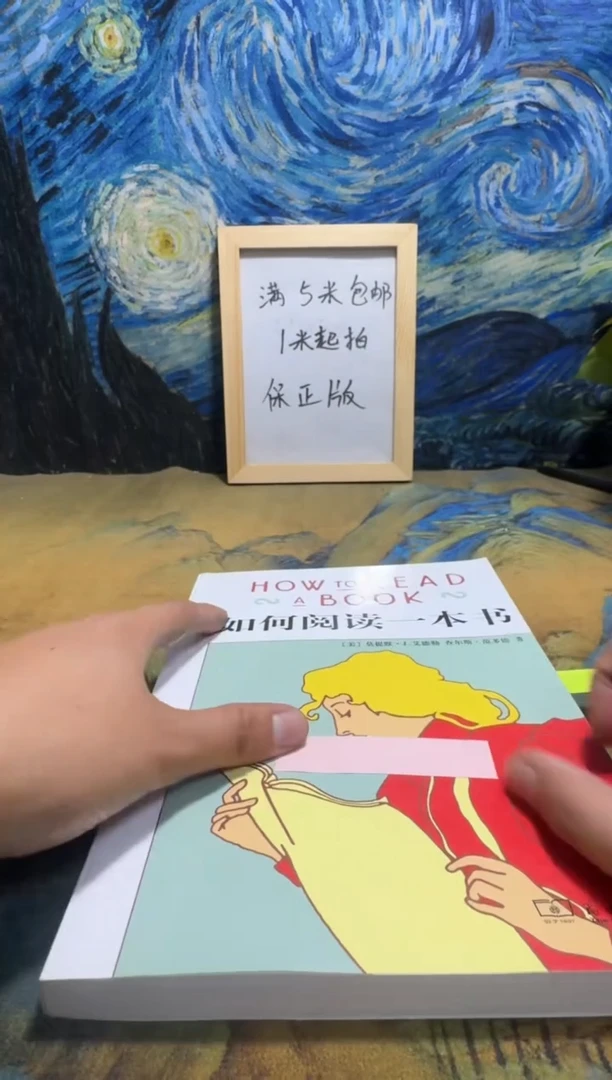 满5米包邮
1米起拍
保正版
HOW TO READ
A BOOK
如何阅读一本书
[美] 莫提默·J.艾德勒 查尔斯·范多伦 著